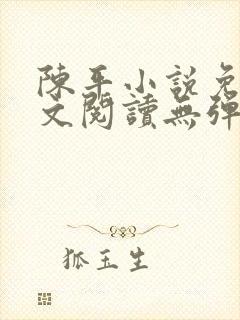 陳平小說免
文閱讀無彈
狐玉生